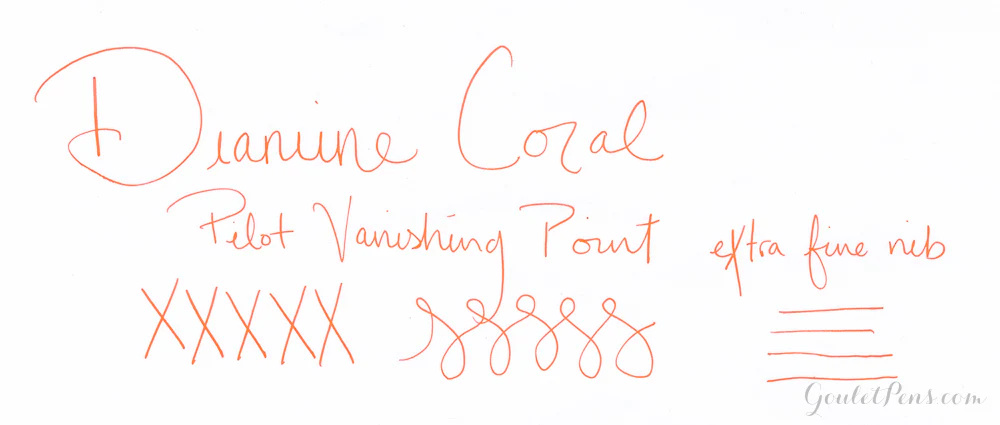 Diamine Coral
Pilot Vanishing Point
extra fine nib
XXXXX
GouletPens.com